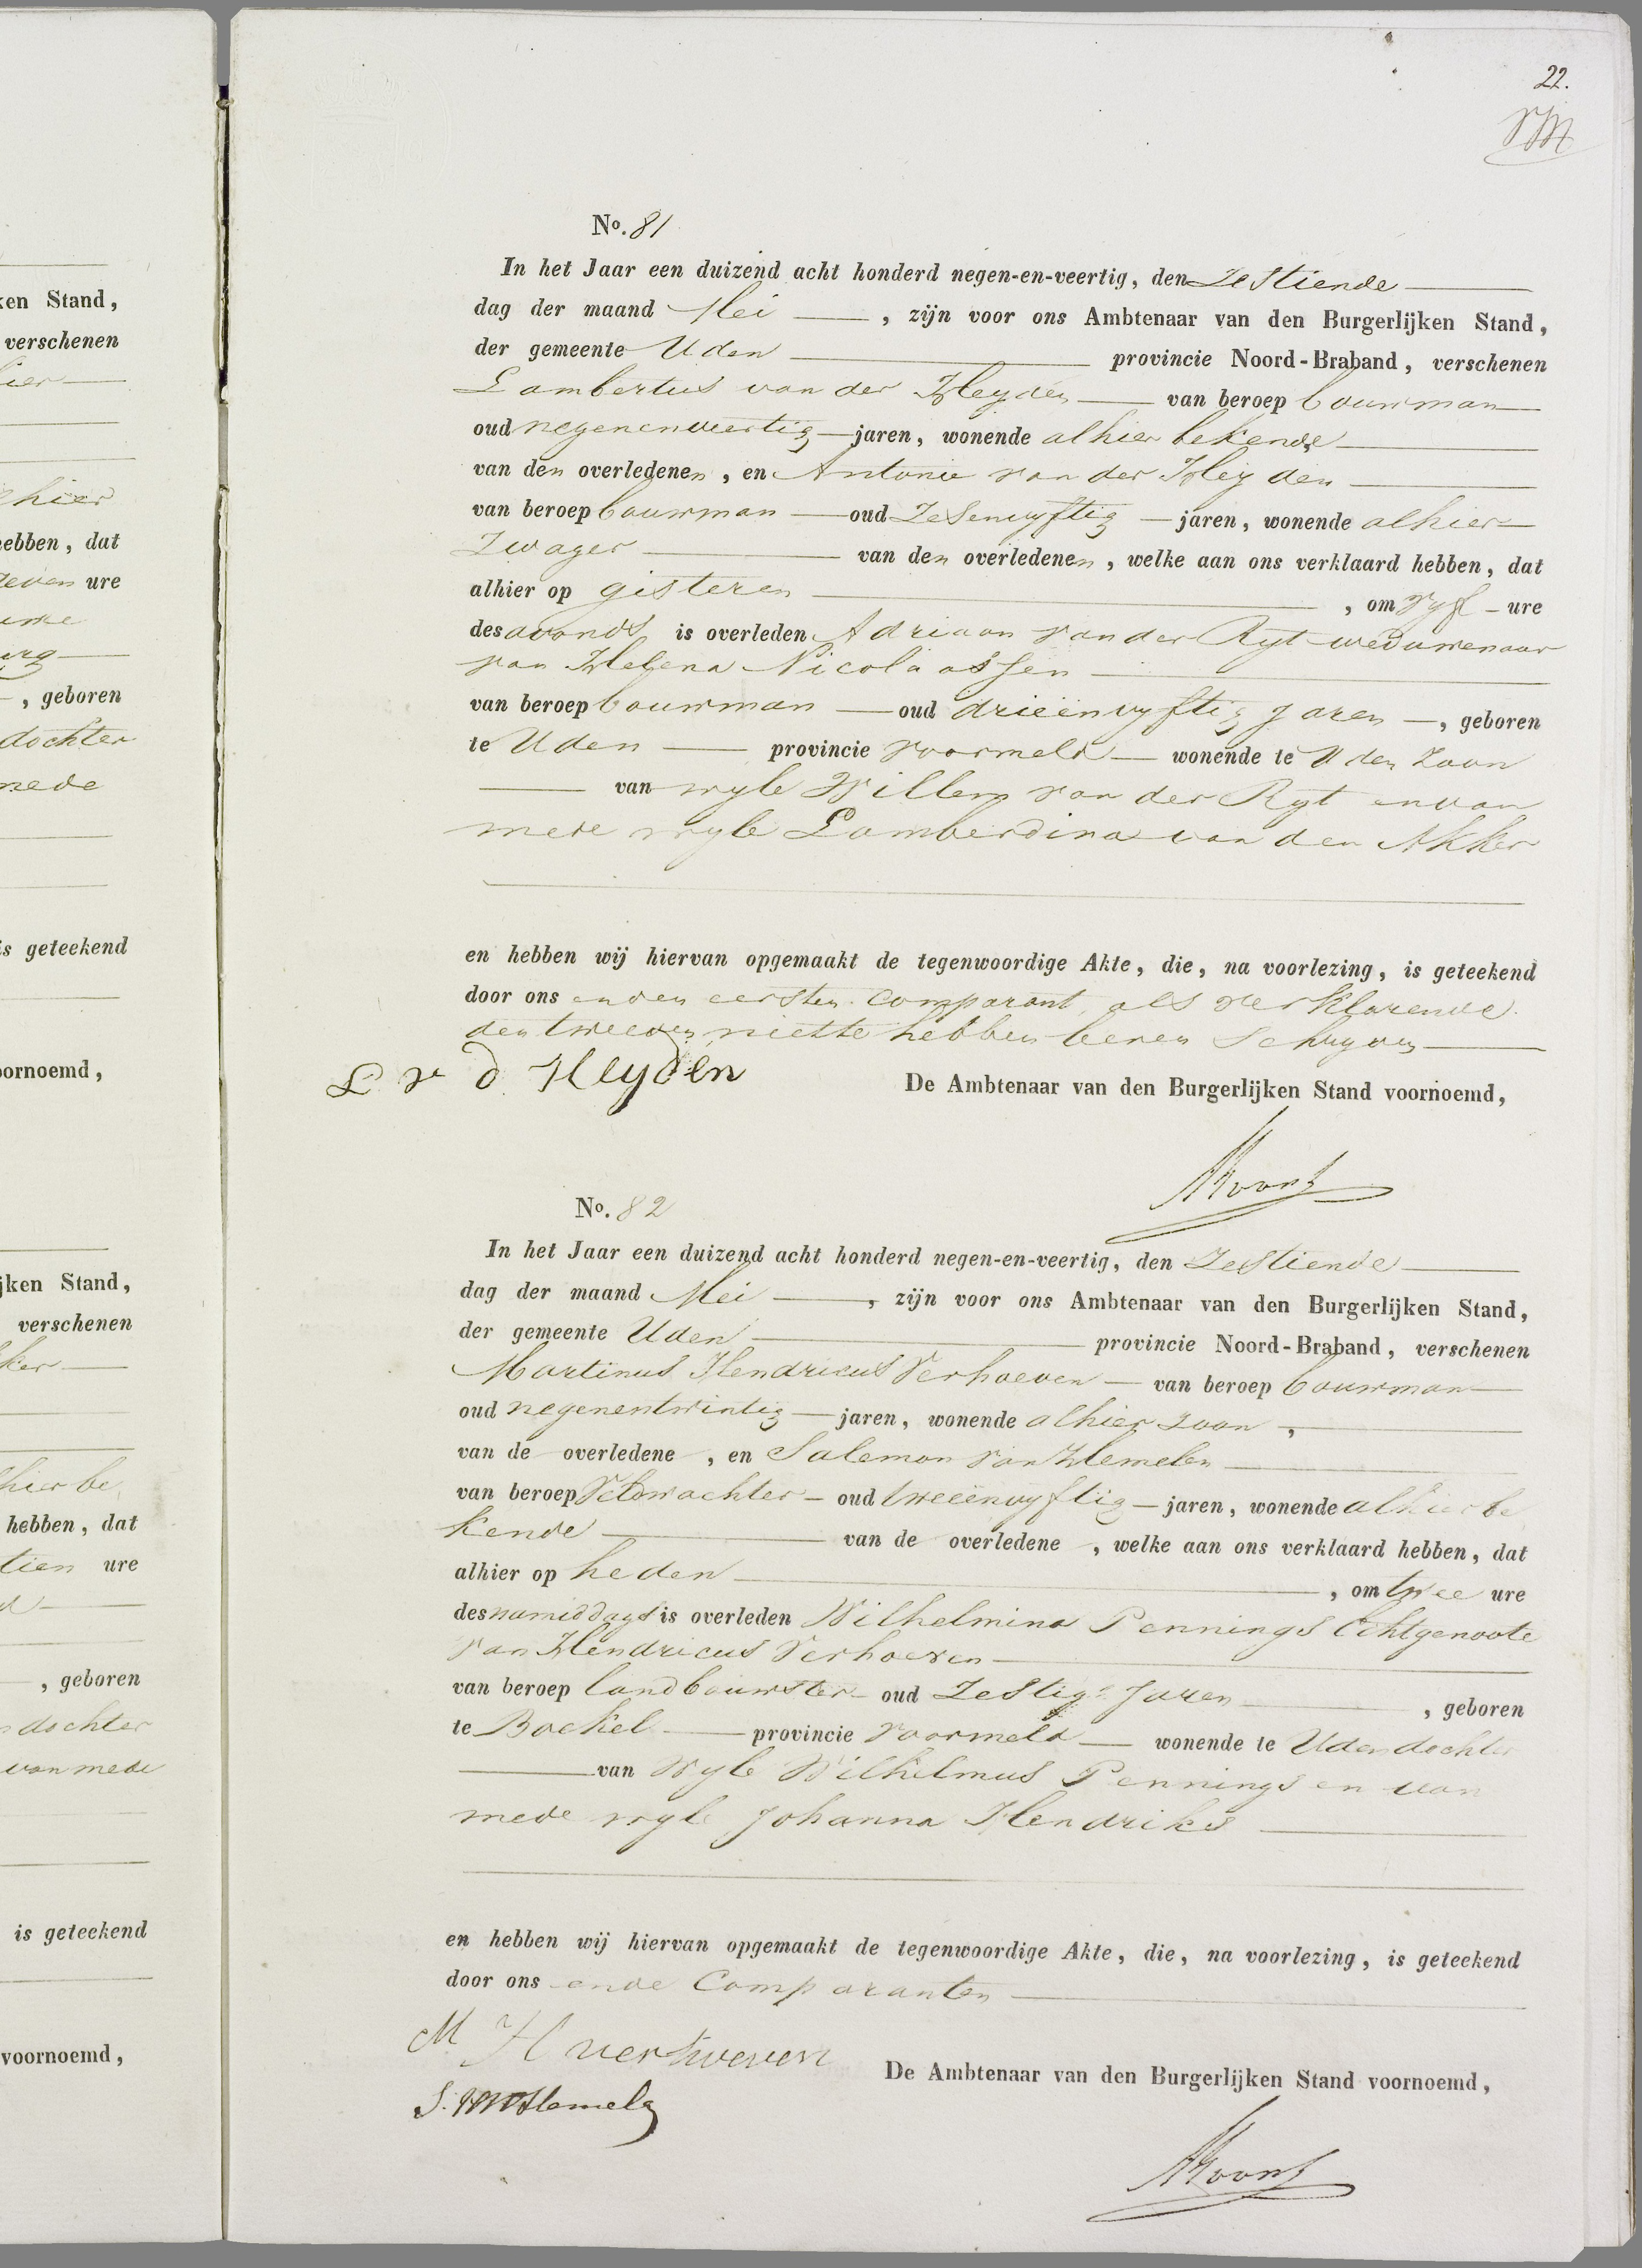 ken Stand,
verschenen
hier
hebben, dat
zeven ure
, geboren
dochter
mede
is geteekend
voornoemd,
ijken Stand,
verschenen
hier be
hebben, dat
tien ure
, geboren
dochter
van mede
is geteekend
voornoemd,
22.
VM
No. 81
In het Jaar een duizend acht honderd negen-en-veertig, den Zestiende
dag der maand Mei , zijn voor ons Ambtenaar van den Burgerlijken Stand,
der gemeente Uden provincie Noord-Braband, verschenen
Lambertus van der Heyden van beroep bouwman
oud negenenveertig jaren, wonende alhier bekende
van den overledenen, en Antonie van der Heyden
van beroep bouwman oud Zesenvyftig jaren, wonende alhier
Zwager van den overledenen, welke aan ons verklaard hebben, dat
alhier op gisteren , om vyf ure
des avonds is overleden Adriaan van der Ryt weduwenaar
van Helena Nicolaassen
van beroep bouwman oud drieënvyftig jaren , geboren
te Uden provincie voormeld wonende te Uden Zoon
van wyle Willem van der Ryt en van
mede wyle Lamberdina van den Akker
en hebben wij hiervan opgemaakt de tegenwoordige Akte, die, na voorlezing, is geteekend
door ons en den eersten Comparant, als verklarende
den tweeden niet te hebben leeren Schryven
L v d Heyden
De Ambtenaar van den Burgerlijken Stand voornoemd,
No. 82
In het Jaar een duizend acht honderd negen-en-veertig, den Zestiende
dag der maand Mei , zijn voor ons Ambtenaar van den Burgerlijken Stand,
der gemeente Uden provincie Noord-Braband, verschenen
Martinus Hendricus Verhoeven van beroep bouwman
oud negenentwintig jaren, wonende alhier zoon ,
van de overledene , en Salemon van Hemelen
van beroep Veldwachter oud tweeënvyftig jaren, wonende alhier be
kende van de overledene , welke aan ons verklaard hebben, dat
alhier op heden , om twee ure
des namiddags is overleden Wilhelmina Pennings Echtgenoote
van Hendricus Verhoeven
van beroep landbouwster oud Zestig Jaren , geboren
te Boekel provincie voormeld wonende te Uden dochter
van wyle Wilhelmus Pennings en van
mede wyle Johanna Hendriks
en hebben wij hiervan opgemaakt de tegenwoordige Akte, die, na voorlezing, is geteekend
door ons en de Comparanten
M H verhoeven
De Ambtenaar van den Burgerlijken Stand voornoemd,